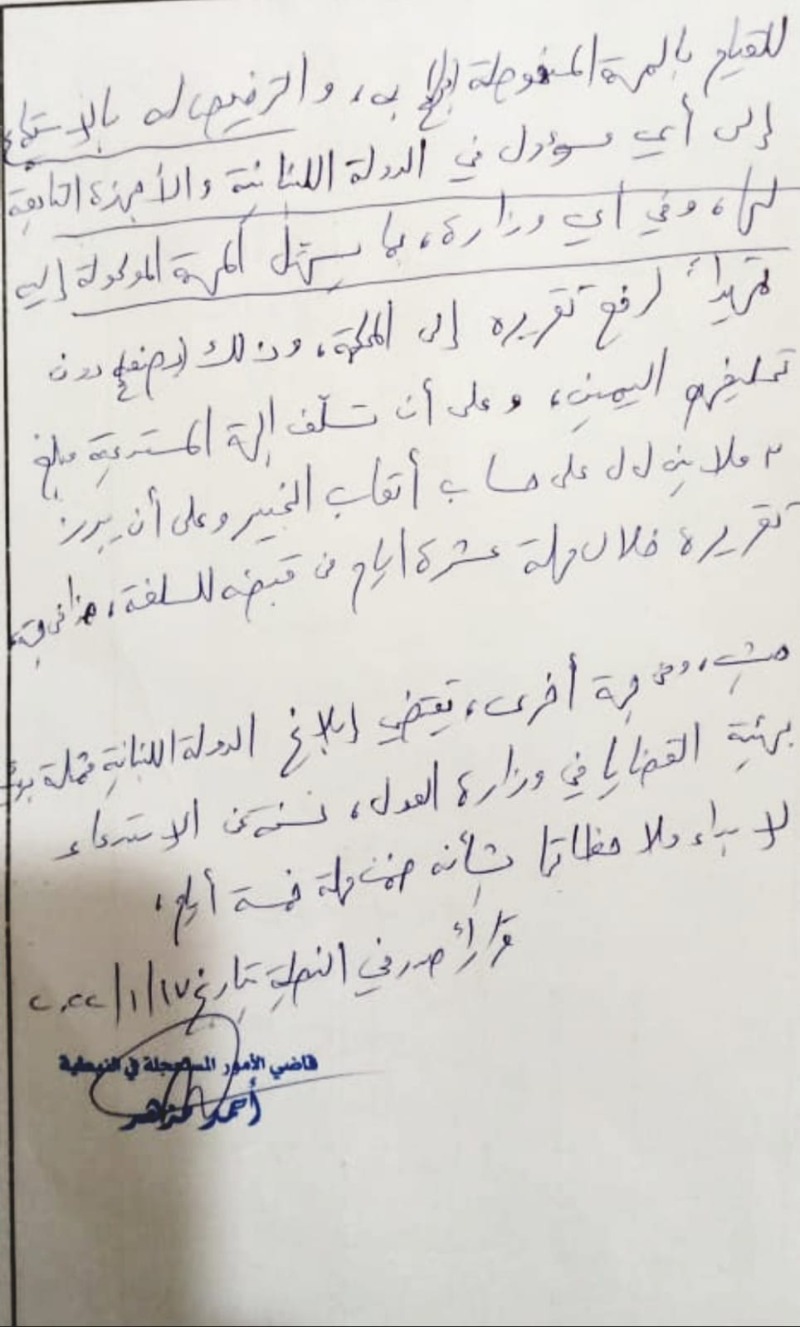 للقيام بالمهمة المنوطة به، والترخيص له بالاستماع
إلى أي مسؤول في الدولة اللبنانية والأجهزة التابعة
لها، وفي أي وزارة، بما يسهّل المهمة الموكولة إليه
تمهيداً لرفع تقريره إلى المحكمة، وذلك دون
تحليفهم اليمين، وعلى أن تسلّف الجهة المستدعية مبلغ
٣ ملايين ل.ل على حساب أتعاب الخبير وعلى أن يبرز
تقريره خلال مهلة عشرة أيام من قبضه للسلفة، هذا من جهة،
حيث، ومن جهة أخرى، يقتضي إبلاغ الدولة اللبنانية ممثلة
بهيئة القضايا في وزارة العدل، نسخة عن الاستدعاء
لإبداء ملاحظاتها بشأنه ضمن مهلة خمسة أيام،
قراراً صدر في النبطية بتاريخ ١٧/١/٢٠٢٢
قاضي الأمور المستعجلة في النبطية
أحمد مزهر